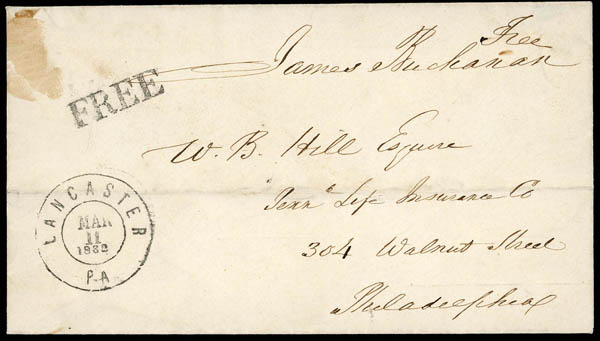 Free
James Buchanan
FREE
W. B. Hill Esquire
Penn ͣ Life Insurance Co
304 Walnut Street
Philadelphia
LANCASTER
MAR
11
1862
PA